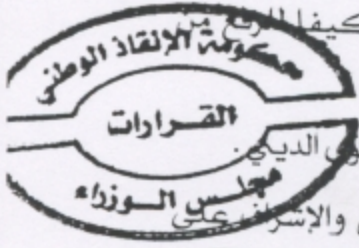 كيفا للرفع من
حكومة الإنقاذ الوطني
القرارات
الديني.
مجلس الوزراء
والإشراف على